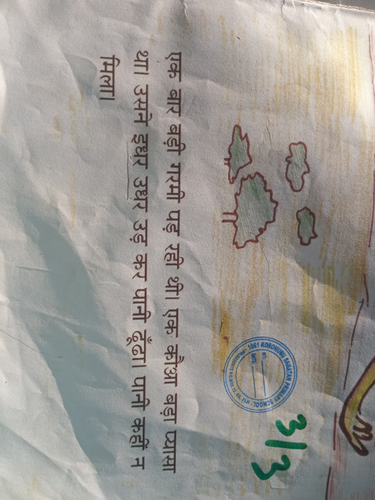 एक बार बड़ी गरमी पड़ रही थी। एक कौआ बड़ा प्यासा
था। उसने इधर उधर उड़ कर पानी ढूँढा। पानी कहीं न
मिला।
3/3